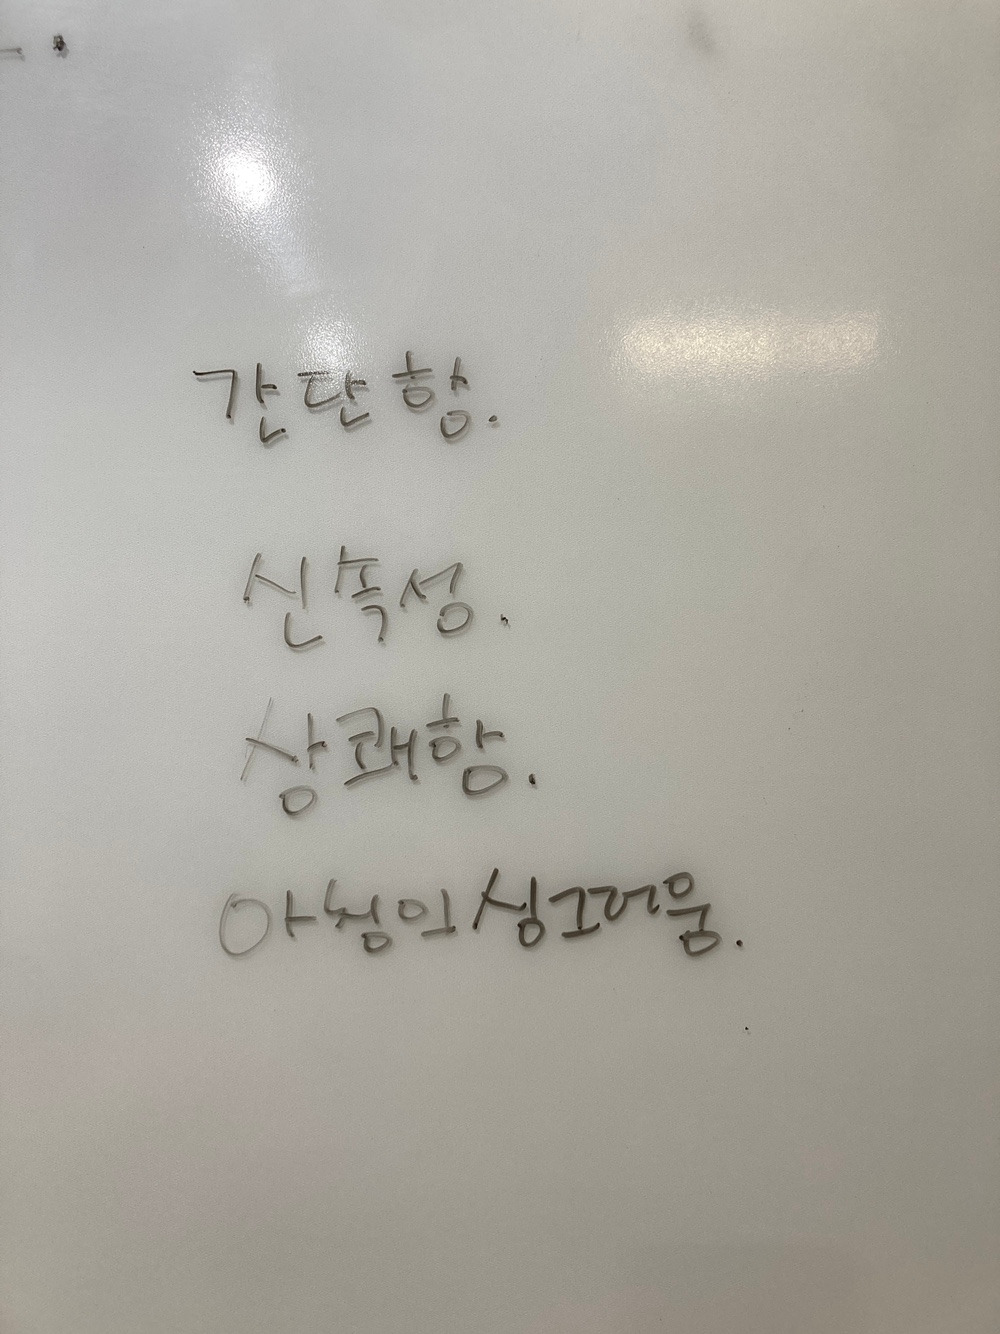 간단함.
신속성.
상쾌함.
아침의 싱그러움.